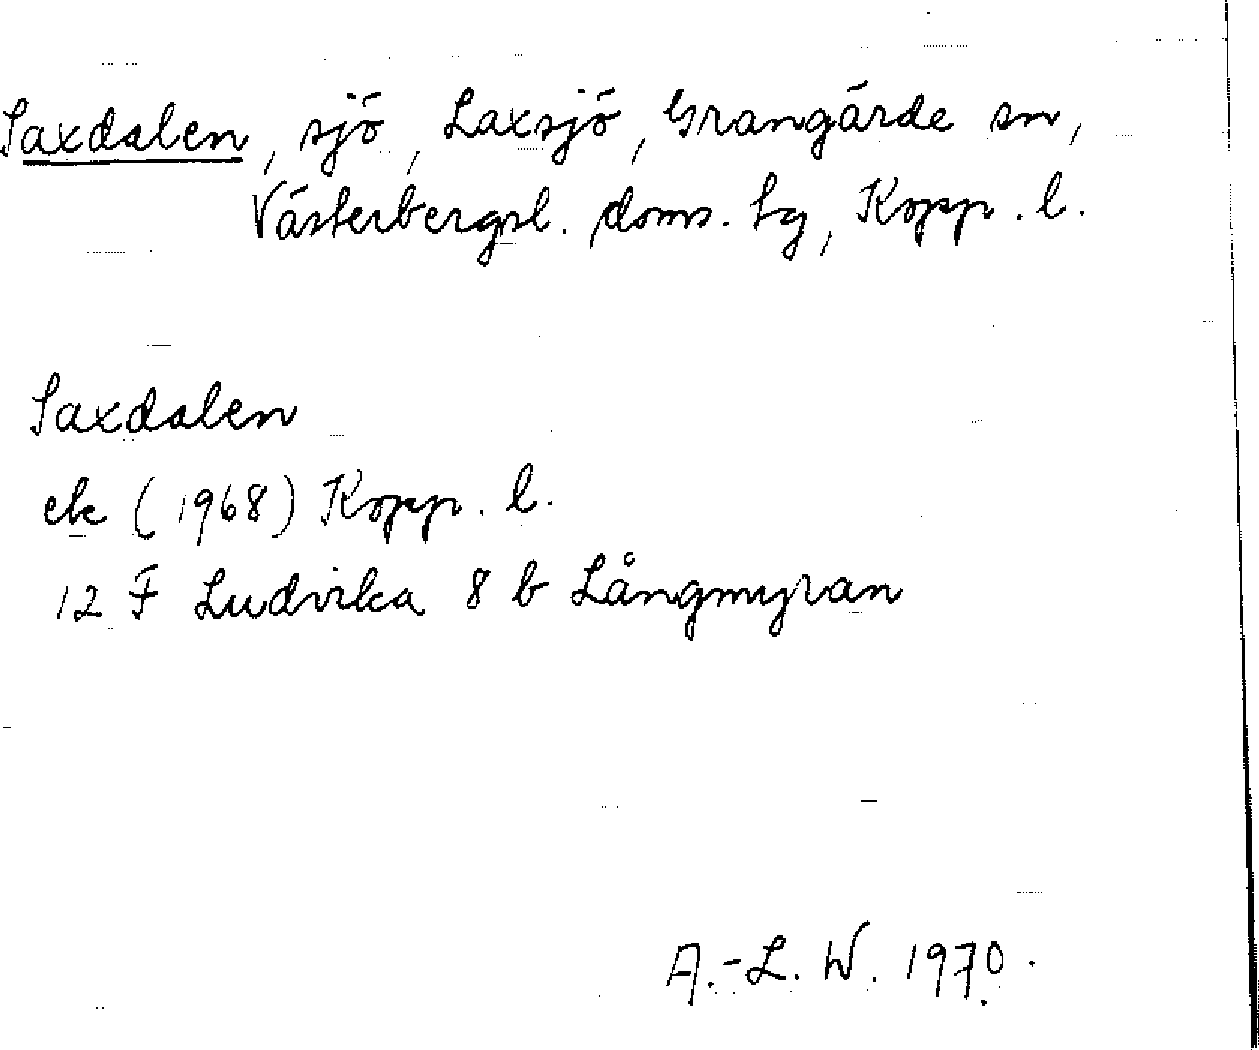 Saxdalen, sjö, Laxsjö, Grangärde sn,
Västerbergsl. doms. tg, Kopp. l.
Saxdalen
ek (1968) Kopp. l.
12 F Ludvika 8 b Långmyran
A.-L. W. 1970.